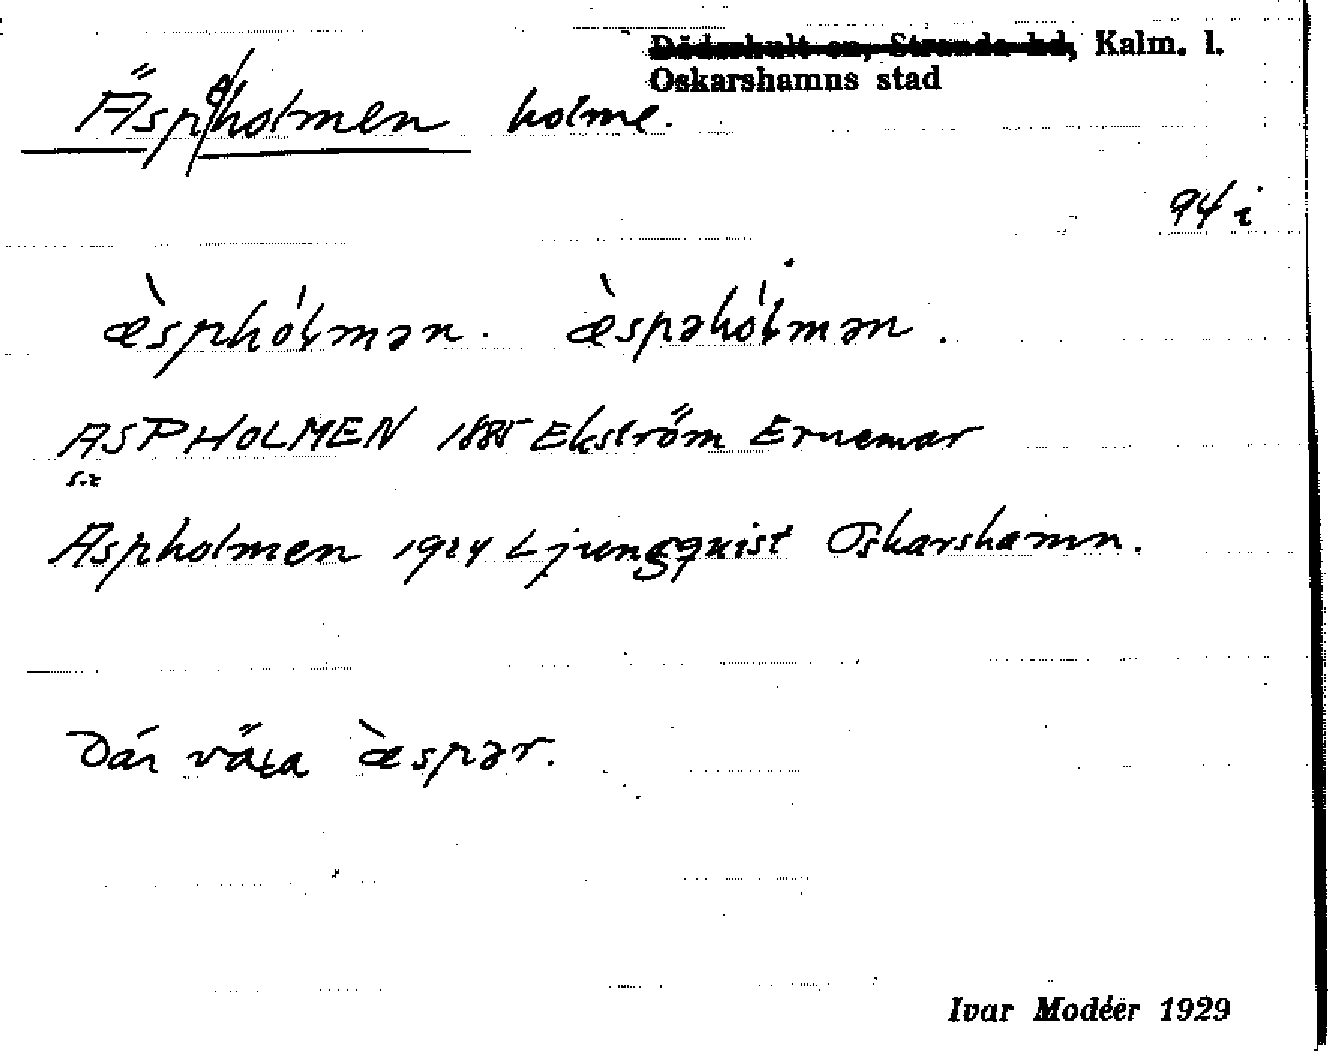 Döderhult sn, Stranda hd, Kalm. l.
Oskarshamns stad
Äsp(e)holmen holme.
94 i
æ̀sphólmən. æ̀spəhólmən.
ASPHOLMEN 1885 Ekström Ernemar
s.r
Aspholmen 1924 Ljungqvist Oskarshamn.
Där väχa æ̀spər.
Ivar Modéer 1929